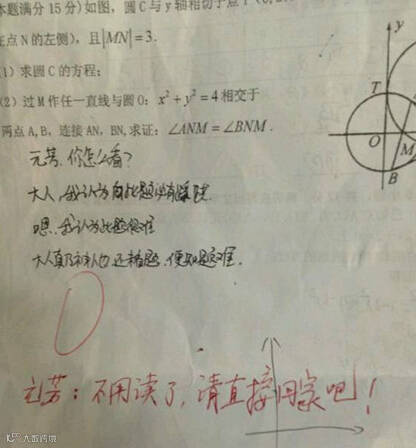 本题满分15分)如图,圆C与y轴相切于点T(0,2
在点N的左侧),且|MN|=3.
1)求圆C的方程;
(2)过M作任一直线与圆O:x²+y²=4相交于
两点A,B,连接AN,BN,求证:∠ANM=∠BNM.
元芳,你怎么看?
大人,我认为此题有蹊跷
嗯,我认为此题很难
大人真乃神人也,还未看题,便知题难.
元芳:不用读了,请直接回家吧!
y
T
O
M
B
大数跨境